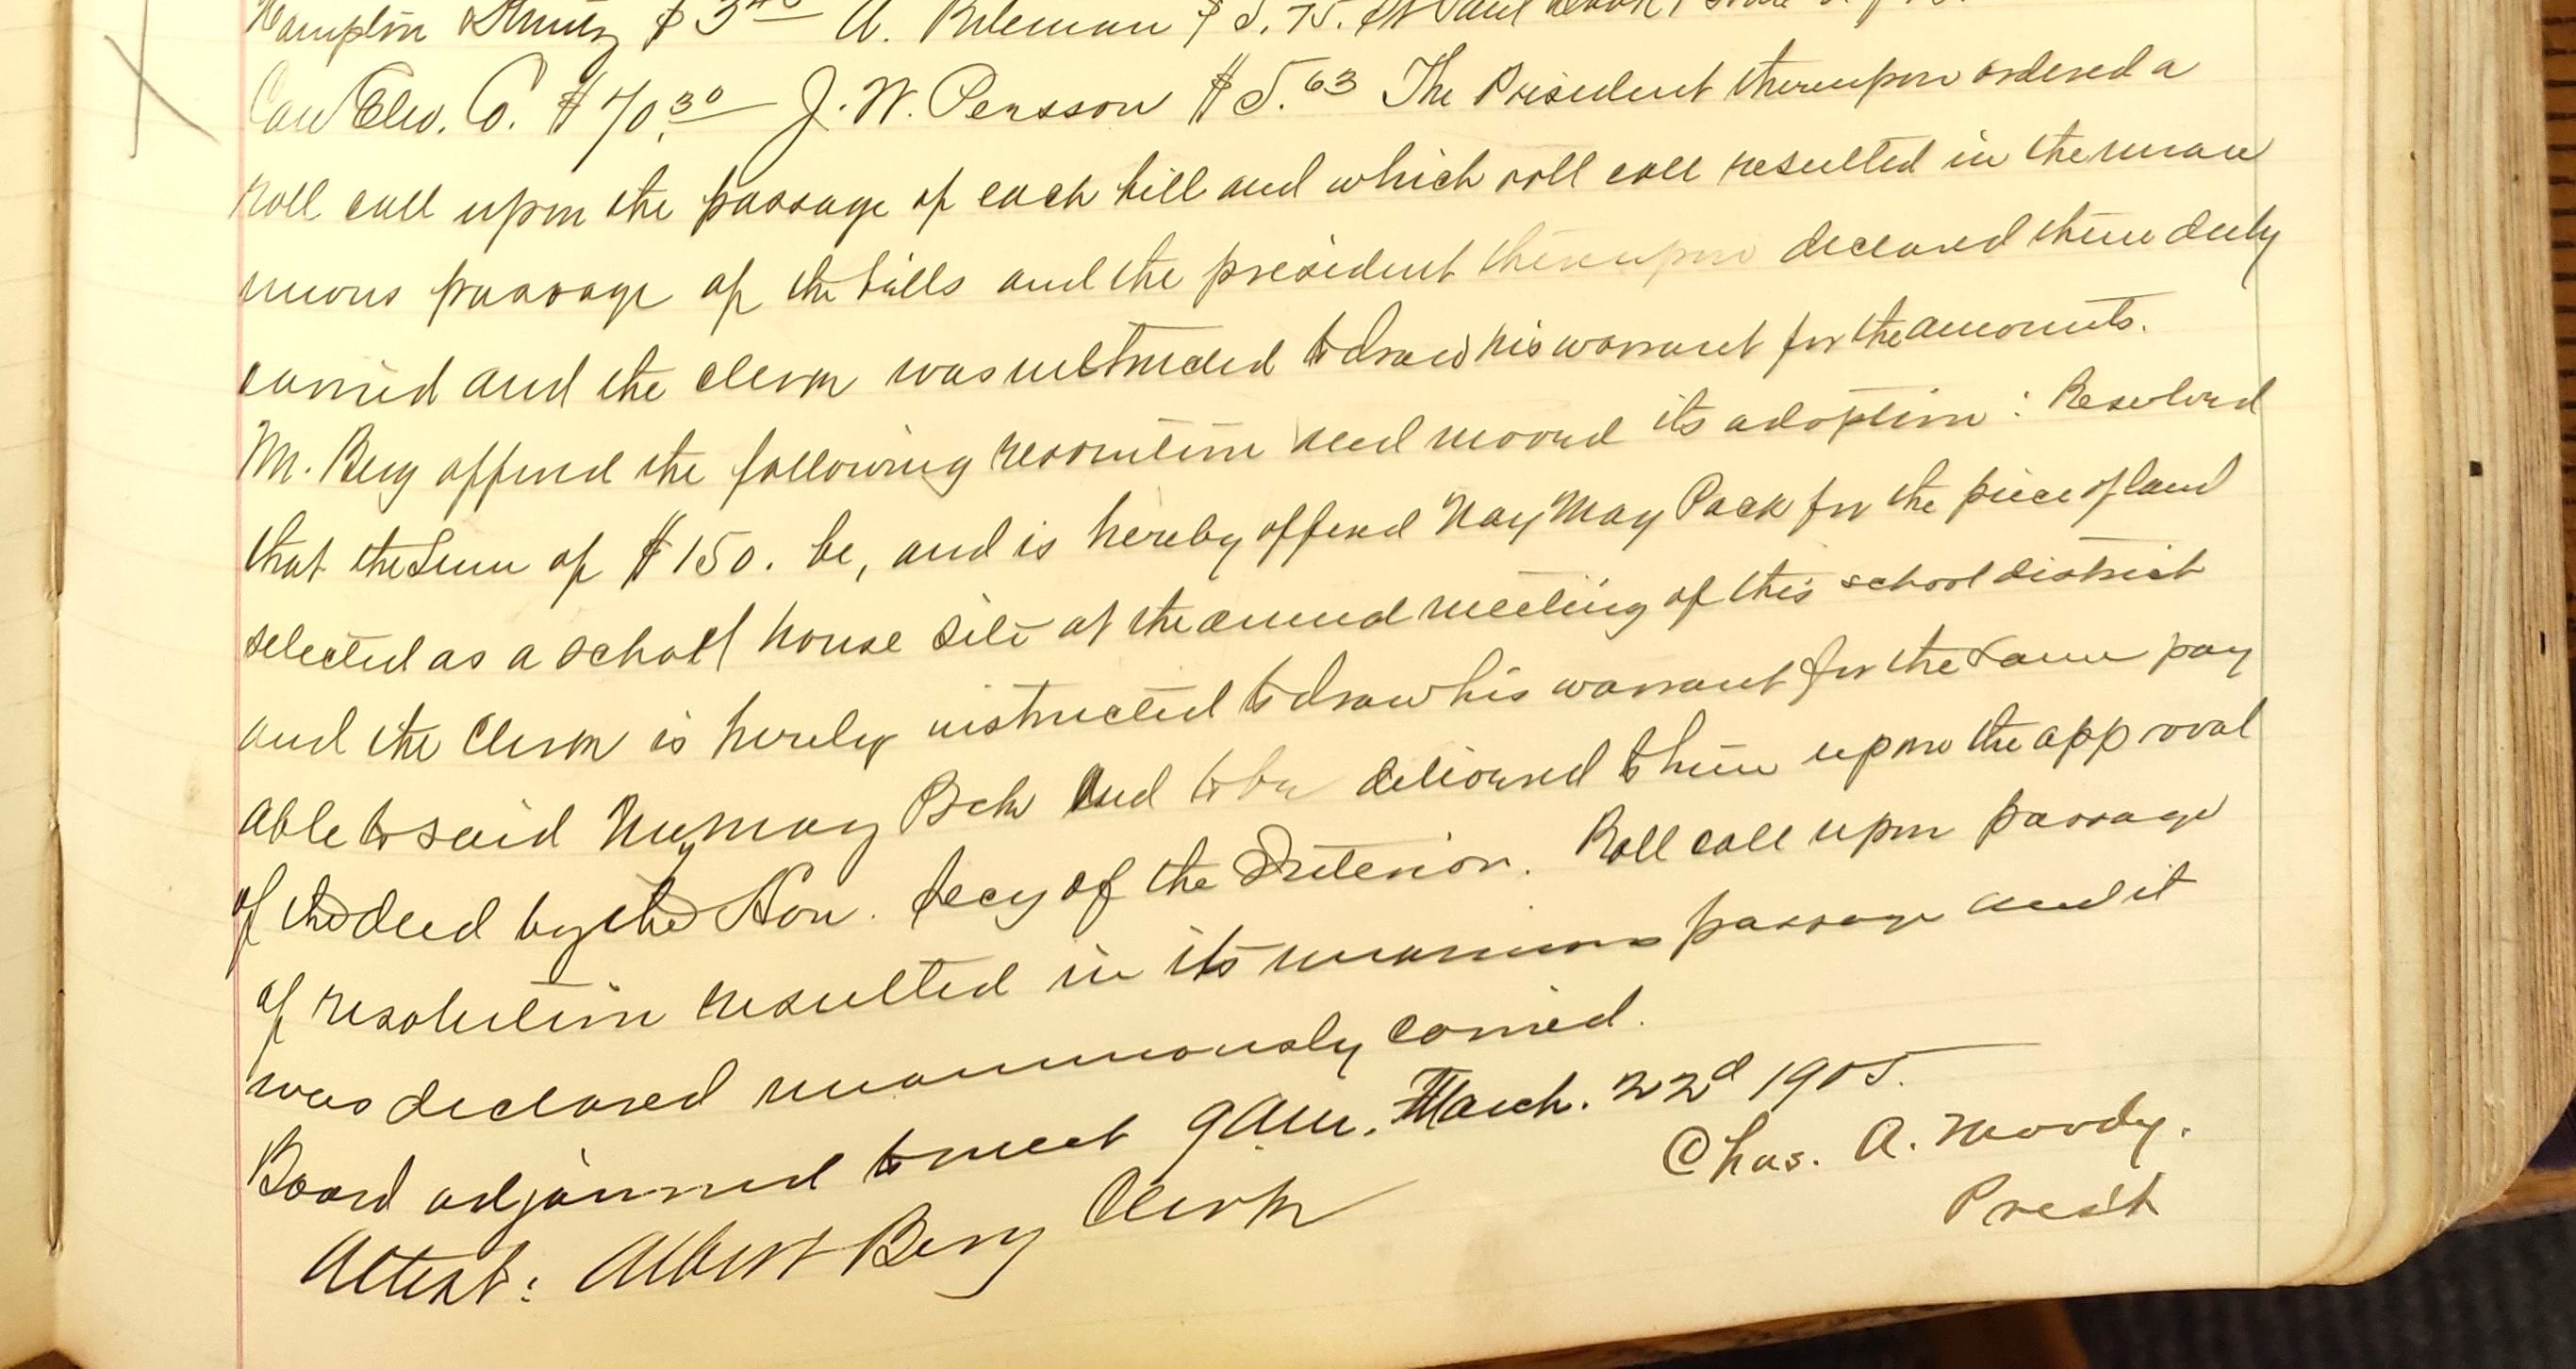 Hampton $3 40 A. $5.75. St Paul Book &
Can Elev. Co. $70.30 J. W. Persson $5.63 The President thereupon ordered a
Roll call upon the passage of each bill and which roll call resulted in the unan
imous passage of the bills and the president thereupon declared them duly
carried and the clerk was instructed to draw his warrant for the amounts.
Mr. Berg offered the following resolution and moved its adoption: Resolved
that the Sum of $150. be, and is hereby offered Nay May Pock for the piece of land
selected as a school house site at the annual meeting of this school district
and the Clerk is hereby instructed to draw his warrant for the same pay
able to said may Pock and to be delivered to him upon the approval
of the deed by the Hon. Secy of the Interior. Roll call upon passage
of resolution resulted in its unanimous passage and it
was declared unanimously carried.
Board adjourned to meet 9 am. March. 22d 1905.
Chas. A. Moody.
Pres't
Attest: Albert Berg Clerk